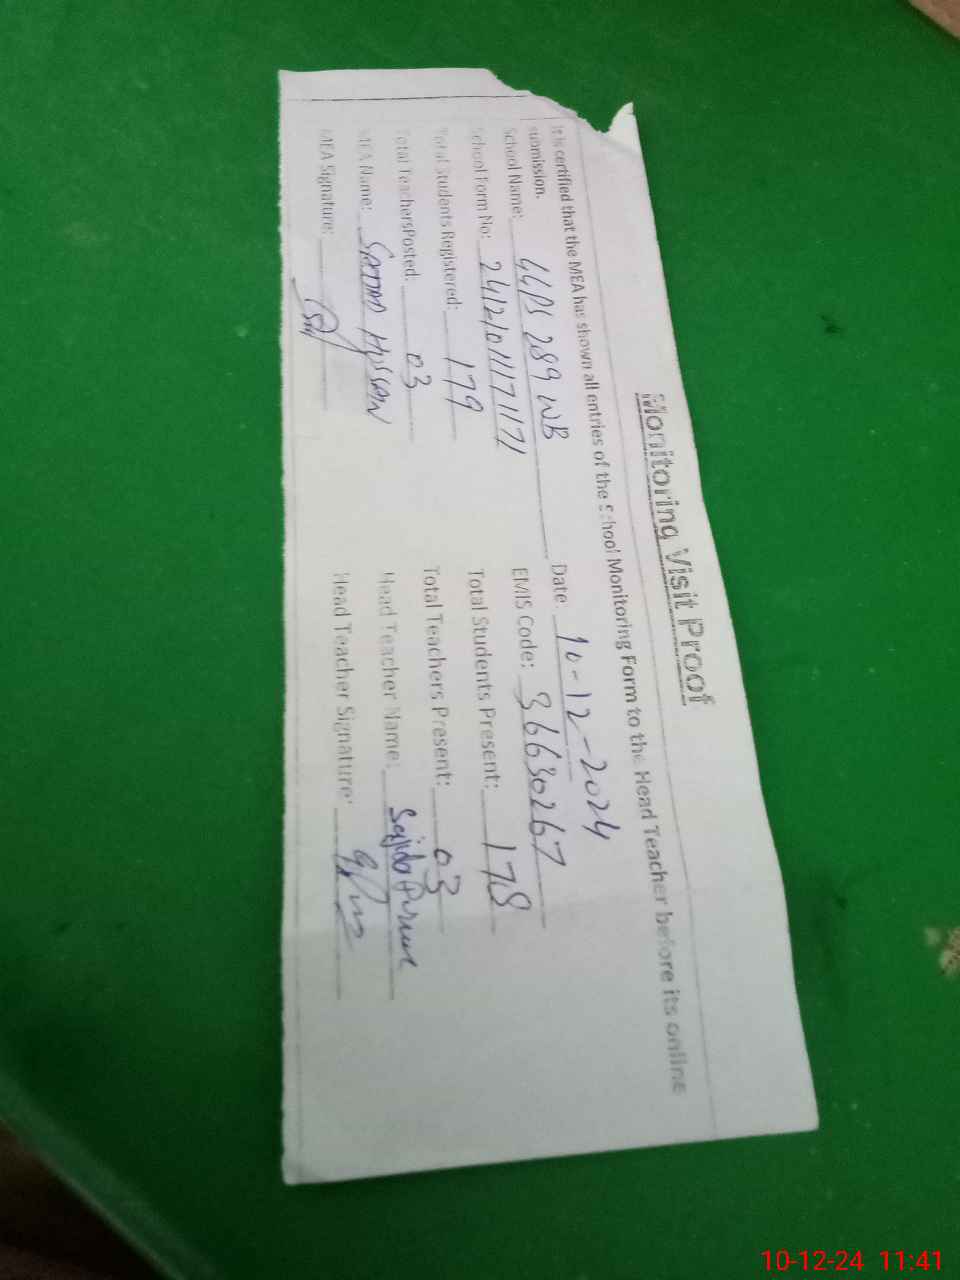 Monitoring Visit Proof
It is certified that the MEA has shown all entries of the School Monitoring Form to the Head Teacher before its online
submission.
Date: 10-12-2024
School Name: GGPS 289 WB
EMIS Code: 36630267
School Form No: 2412101117171
Total Students Present: 178
Total Students Registered: 179
Total Teachers Present: 03
Total TeachersPosted: 03
Head Teacher Name: Sajida
MEA Name: Hussan
Head Teacher Signature:
MEA Signature:
10-12-24 11:41